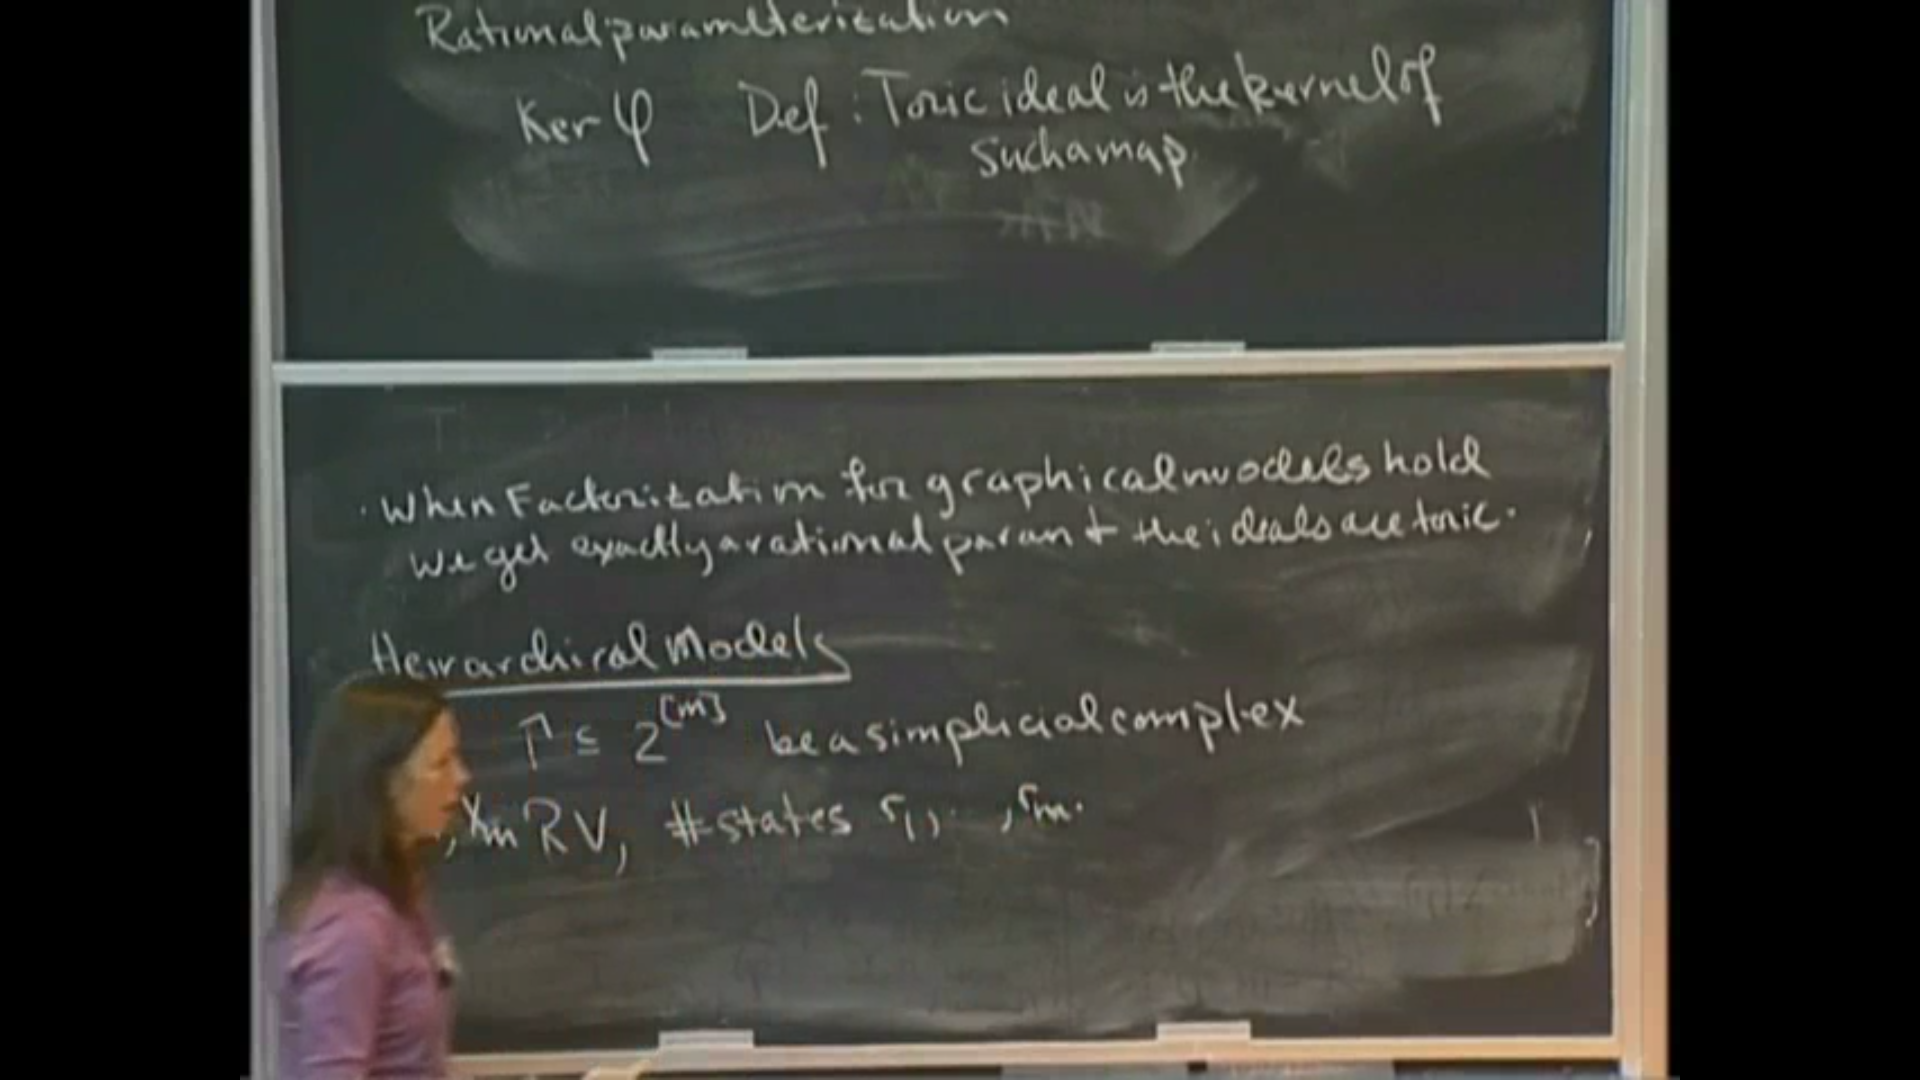 Rational parameterization
Ker φ Def: Toric ideal is the kernel of
such a map.
· When Factorization for graphical models hold
we get exactly a rational param + the ideals are toric.
Heirarchical Models
Γ ⊆ 2^[m] be a simplicial complex
, Xm RV, # states r1, . , rm.